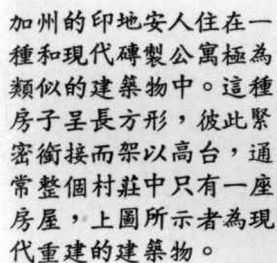 加州的印地安人住在一
種和現代磚製公寓極為
類似的建築物中。這種
房子呈長方形，彼此緊
密銜接而架以高台，通
常整個村莊中只有一座
房屋，上圖所示者為現
代重建的建築物。